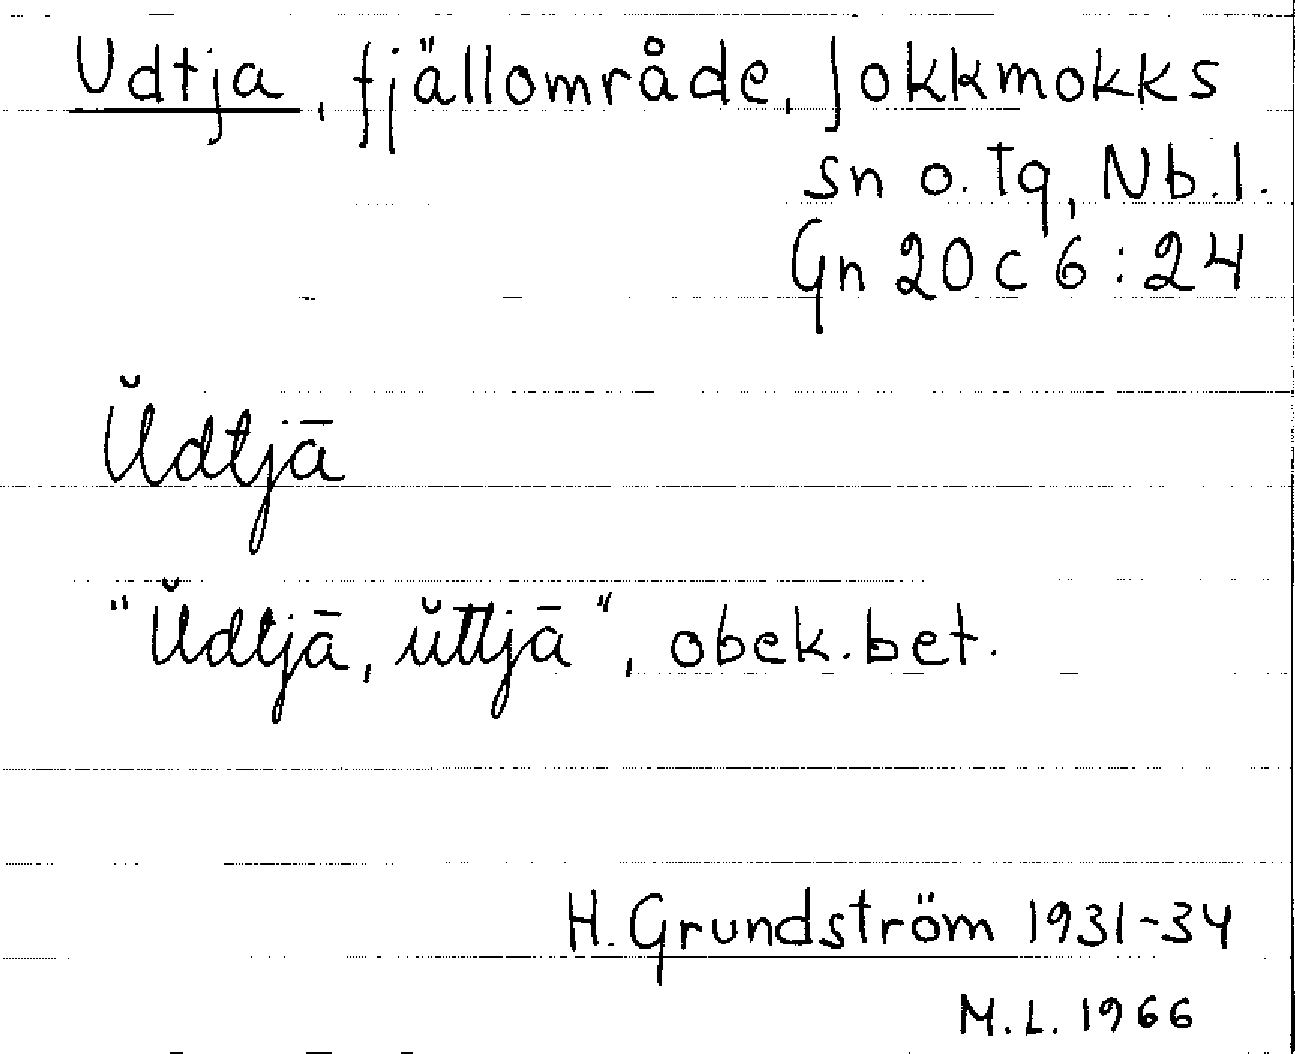 Udtja, fjällområde, Jokkmokks
sn o. tg, Nb.l.
Gn 20 c 6 : 24
Ŭdtjā
"Ŭdtjā, ŭttjā", obek. bet.
H. Grundström 1931-34
M.L. 1966